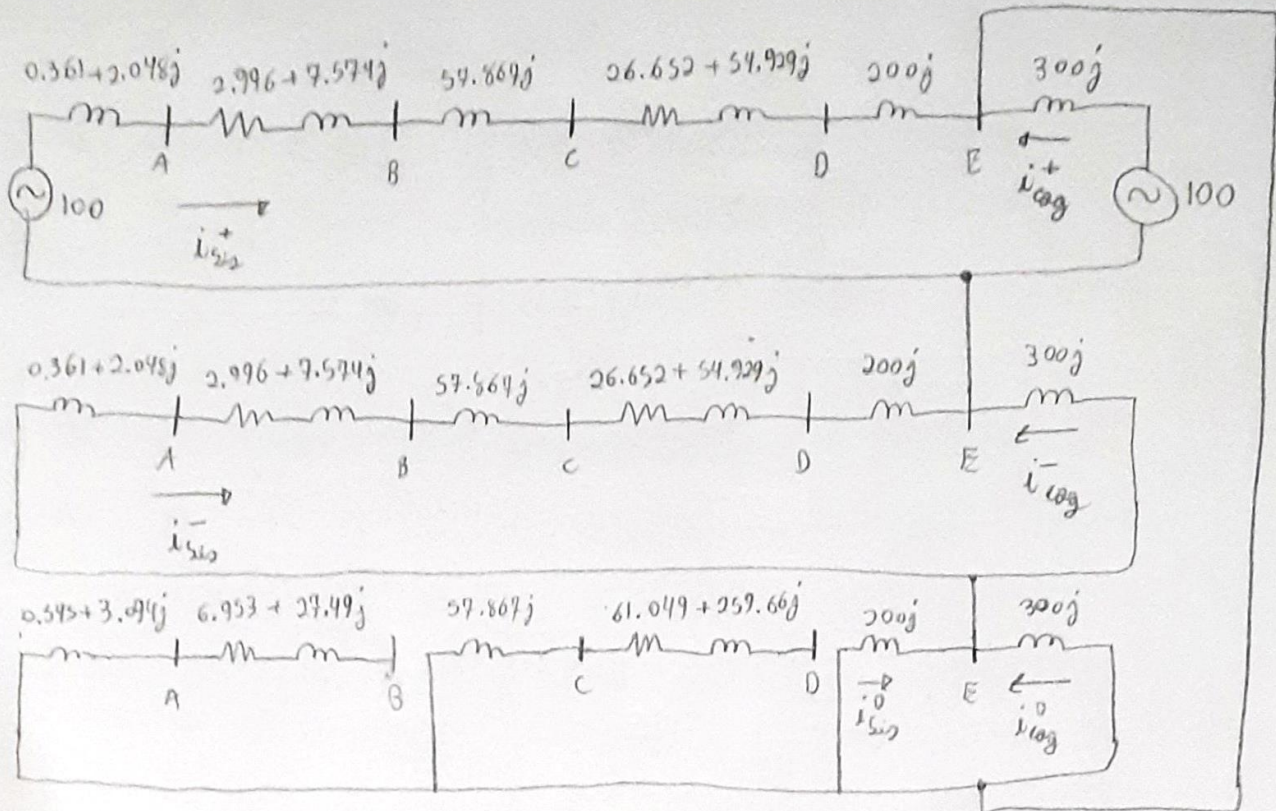 0.361+2.048j 2.996+7.574j 57.867j 26.652+54.929j 200j 300j
A B C D E
100 i⁺sis i⁺cog 100
0.361+2.048j 2.996+7.574j 57.867j 26.652+54.929j 200j 300j
A B C D E
i⁻sis i⁻cog
0.545+3.094j 6.953+27.49j 57.867j 61.049+259.66j 200j 300j
A B C D E
i⁰sis i⁰cog